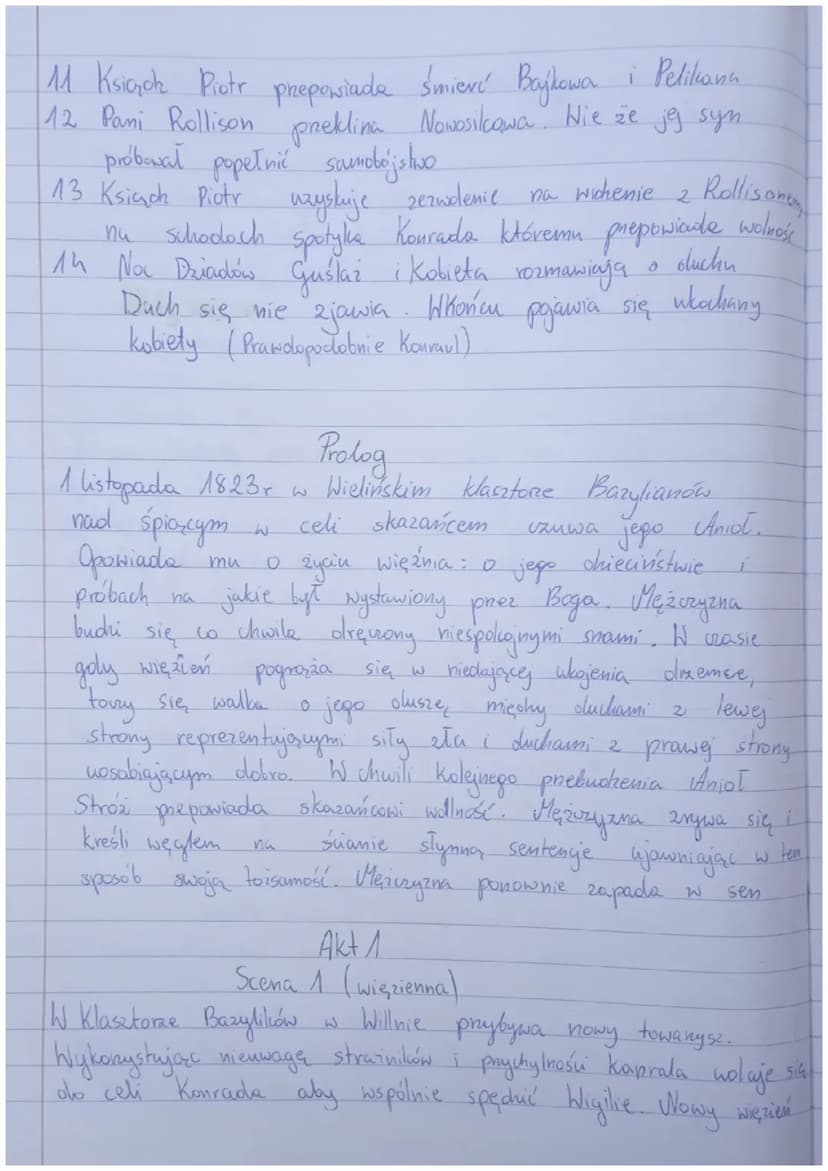 11 Ksiądz Piotr przepowiada śmierć Bajkowa i Pelikana
12 Pani Rollison przeklina Nowosilcowa. Wie że jej syn
próbował popełnić samobójstwo
13 Ksiądz Piotr uzyskuje zezwolenie na widzenie z Rollisonem,
na schodach spotyka Konrada któremu przepowiada wolność
14 Noc Dziadów Guślaż i Kobieta rozmawiają o duchu
Duch się nie zjawia. Wkońcu pojawia się ukochany
kobiety (Prawdopodobnie Konrad)
Prolog
1 listopada 1823r w Wielińskim klasztorze Bazylianów
nad śpiącym w celi skazańcem czuwa jego Anioł.
Opowiada mu o życiu więźnia: o jego dzieciństwie i
próbach na jakie był wystawiony przez Boga. Mężczyzna
budzi się co chwila dręczony niespokojnymi snami. W czasie
gdy więzień pogrąża się w niedającej ukojenia drzemce,
toczy się walka o jego duszę między duchami z lewej
strony reprezentującymi siły zła i duchami z prawej strony
uosabiającym dobro. W chwili kolejnego przebudzenia Anioł
Stróż przepowiada skazańcowi wolność. Mężczyzna zrywa się i
kreśli węglem na ścianie słynną sentencje ujawniając w ten
sposób swoją tożsamość. Mężczyzna ponownie zapada w sen
Akt 1
Scena 1 (więzienna)
W Klasztorze Bazylików w Willnie przybywa nowy towarzysz.
Wykorzystując nieuwagę strażników i przychylności kaprala udaje się
do celi Konrada aby wspólnie spędzić Wigilie. Nowy więzień